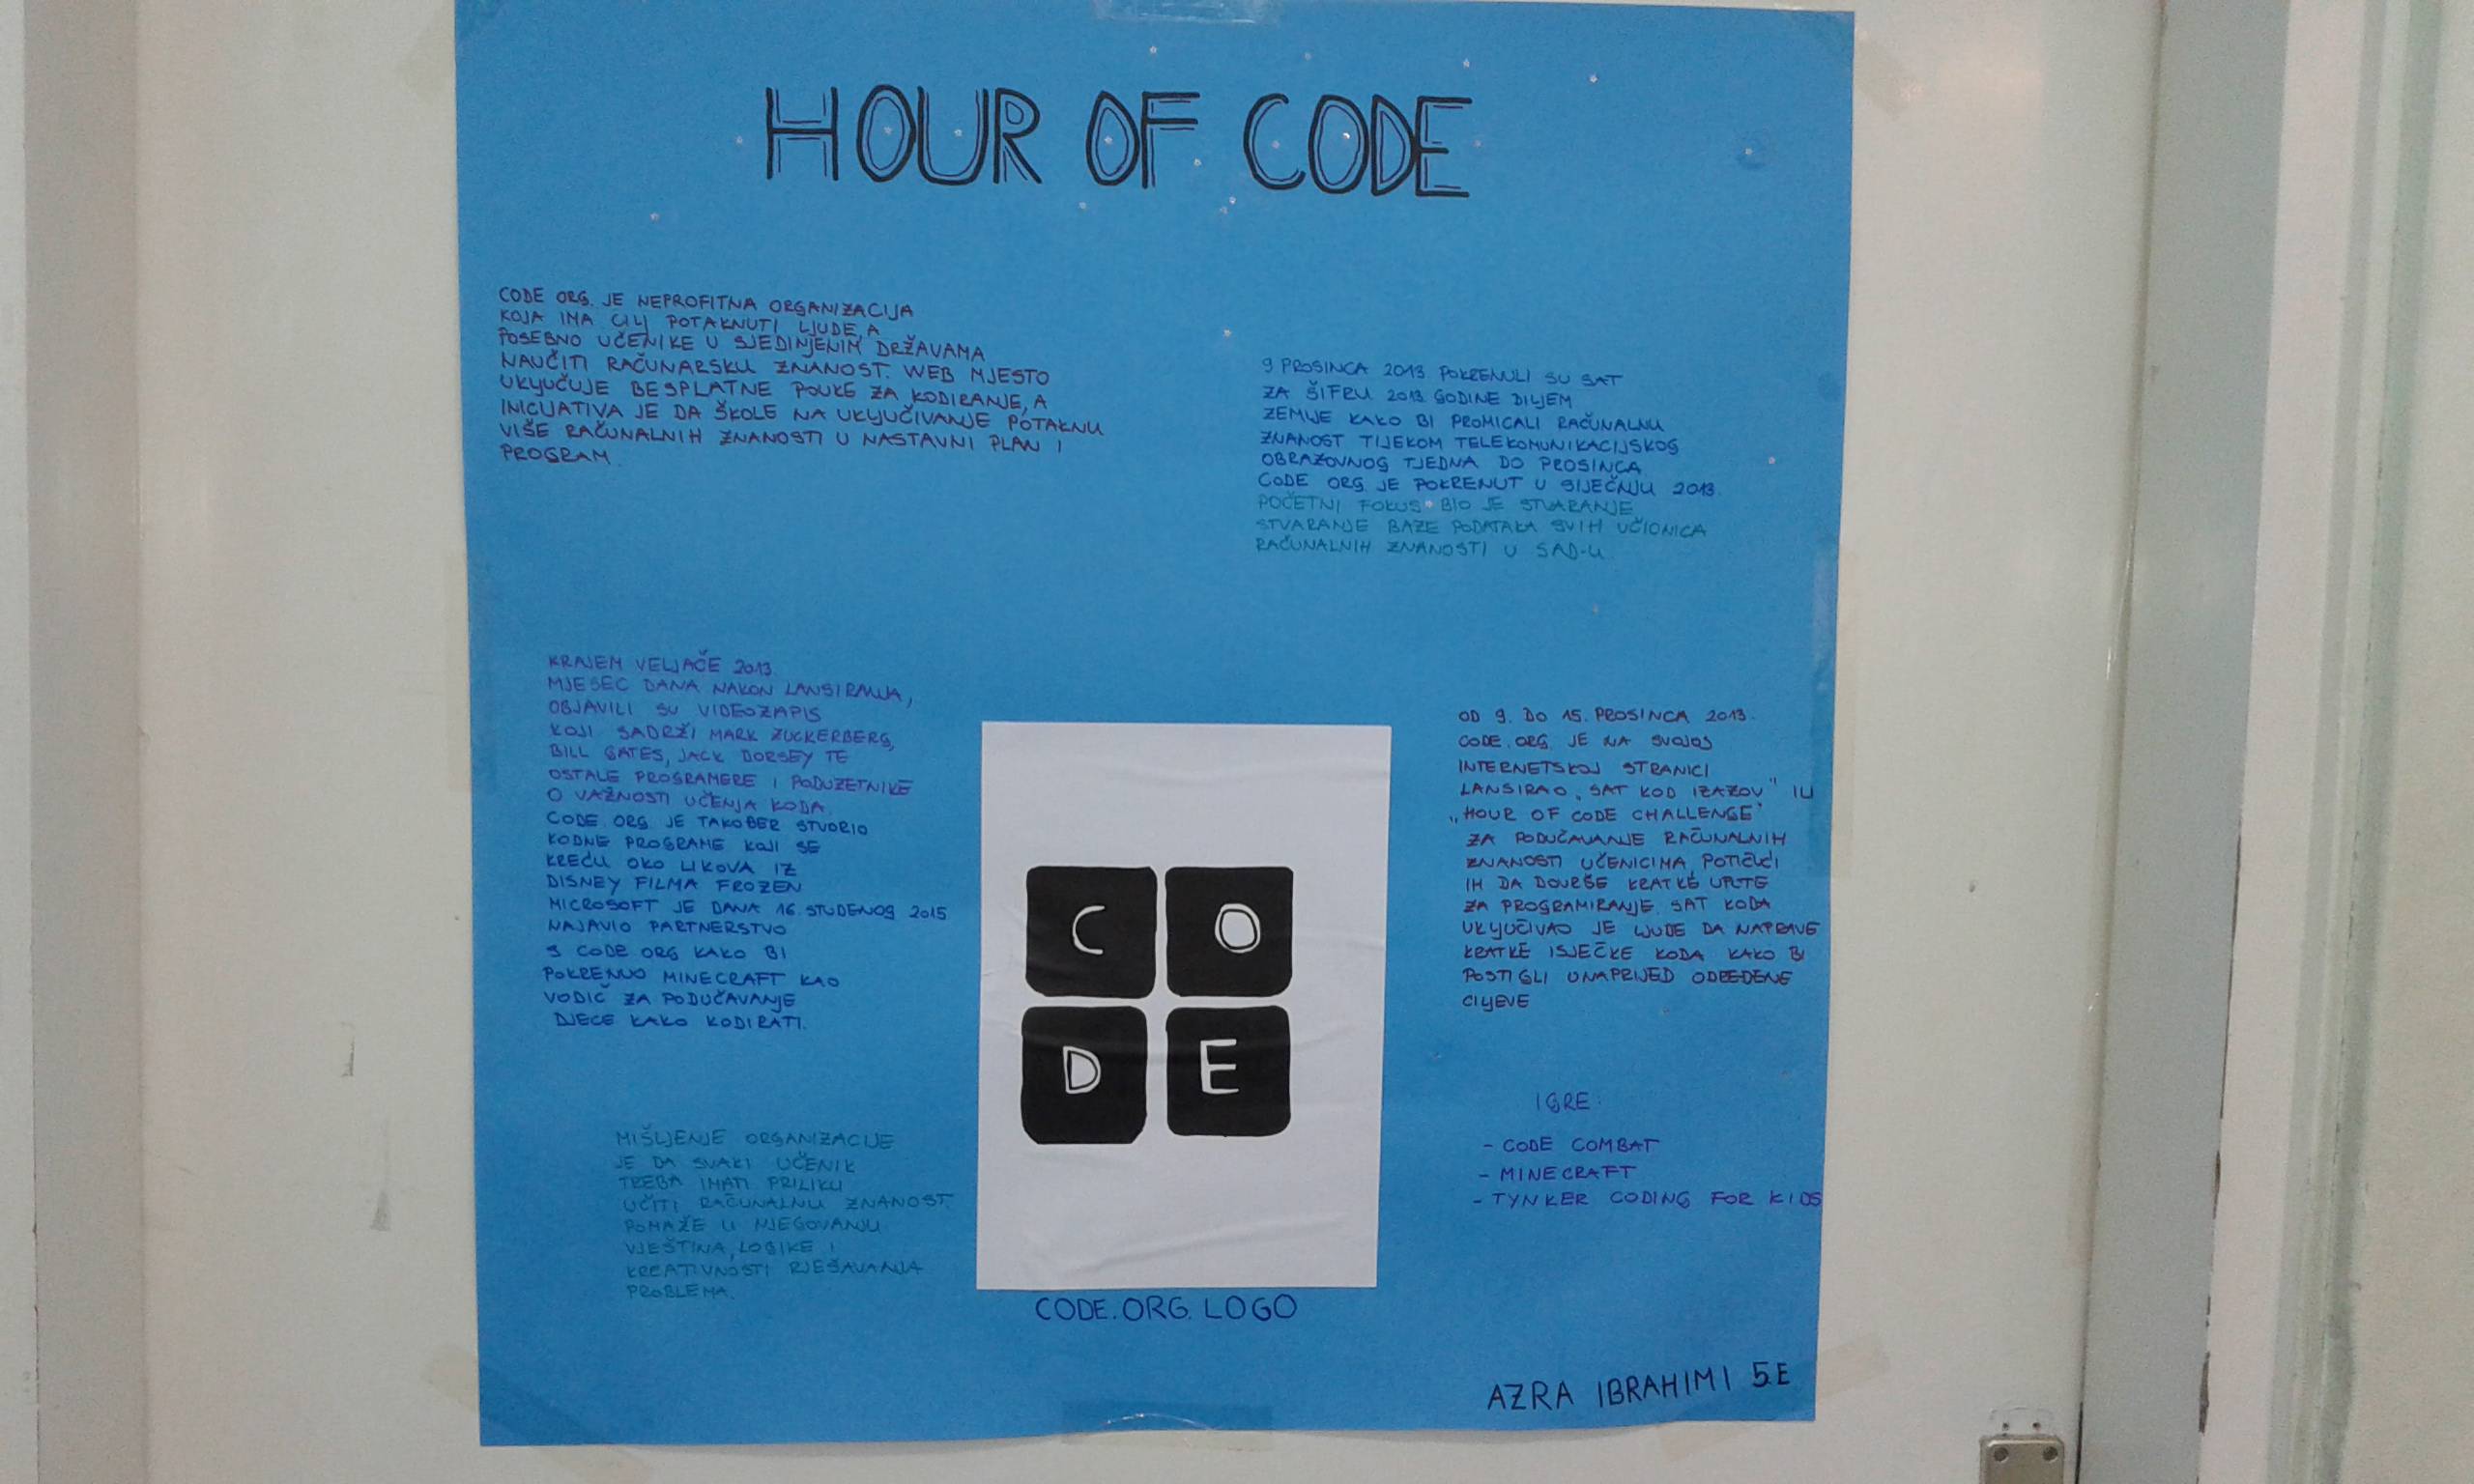 HOUR OF CODE
CODE ORG. JE NEPROFITNA ORGANIZACIJA
KOJA IMA CILJ POTAKNUTI LJUDE, A
POSEBNO UČENIKE U SJEDINJENIM DRŽAVAMA
NAUČITI RAČUNARSKU ZNANOST. WEB MJESTO
UKLJUČUJE BESPLATNE POUKE ZA KODIRANJE, A
INICIJATIVA JE DA ŠKOLE NA UKLJUČIVANJE POTAKNU
VIŠE RAČUNALNIH ZNANOSTI U NASTAVNI PLAN I
PROGRAM.
9 PROSINCA 2013 POKRENULI SU SAT
ZA ŠIFRU 2013 GODINE DILJEM
ZEMLJE KAKO BI PROMICALI RAČUNALNU
ZNANOST TIJEKOM TELEKOMUNIKACIJSKOG
OBRAZOVNOG TJEDNA DO PROSINCA
CODE ORG. JE POKRENUT U SIJEČNJU 2013.
POČETNI FOKUS BIO JE STVARANJE
STVARANJE BAZE PODATAKA SVIH UČIONICA
RAČUNALNIH ZNANOSTI U SAD-U
KRAJEM VELJAČE 2013.
MJESEC DANA NAKON LANSIRANJA,
OBJAVILI SU VIDEOZAPIS
KOJI SADRŽI MARK ZUCKERBERG,
BILL GATES, JACK DORSEY TE
OSTALE PROGRAMERE I PODUZETNIKE
O VAŽNOSTI UČENJA KODA.
CODE.ORG JE TAKOĐER STVORIO
KODNE PROGRAME KOJI SE
KREĆU OKO LIKOVA IZ
DISNEY FILMA FROZEN
MICROSOFT JE DANA 16. STUDENOG 2015
NAJAVIO PARTNERSTVO
S CODE ORG KAKO BI
POKRENUO MINECRAFT KAO
VODIČ ZA PODUČAVANJE
DJECE KAKO KODIRATI.
MIŠLJENJE ORGANIZACIJE
JE DA SVAKI UČENIK
TREBA IMATI PRILIKU
UČITI RAČUNALNU ZNANOST.
POMAŽE U NJEGOVANJU
VJEŠTINA, LOGIKE I
KREATIVNOSTI RJEŠAVANJA
PROBLEMA.
C O
D E
CODE.ORG. LOGO
OD 9. DO 15. PROSINCA 2013.
CODE.ORG. JE NA SVOJOJ
INTERNETSKOJ STRANICI
LANSIRAO „SAT KOD IZAZOV" ILI
„HOUR OF CODE CHALLENGE"
ZA PODUČAVANJE RAČUNALNIH
ZNANOSTI UČENICIMA, POTIČUĆI
IH DA DOVRŠE KRATKE UPUTE
ZA PROGRAMIRANJE. SAT KODA
UKLJUČIVAO JE LJUDE DA NAPRAVE
KRATKE ISJEČKE KODA KAKO BI
POSTIGLI UNAPRIJED ODREĐENE
CILJEVE
IGRE:
- CODE COMBAT
- MINECRAFT
- TYNKER CODING FOR KIDS
AZRA IBRAHIMI 5.E